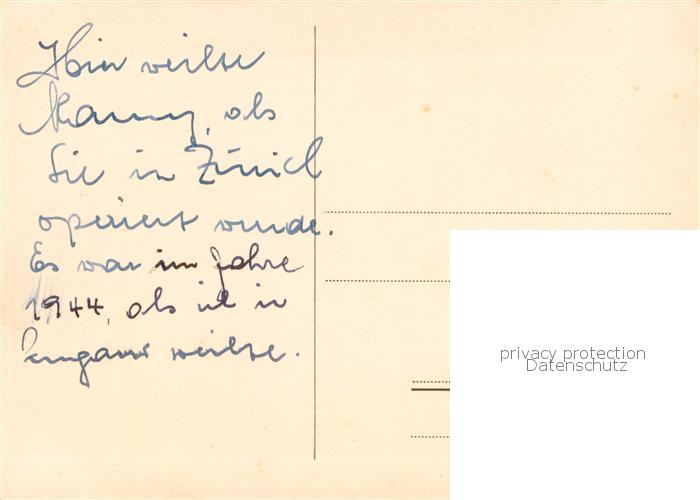 Hier weilte
Mammy, als
Sie in Zürich
operiert wurde.
Es war im Jahre
1944, als ich in
Lugano weilte.
privacy protection
Datenschutz